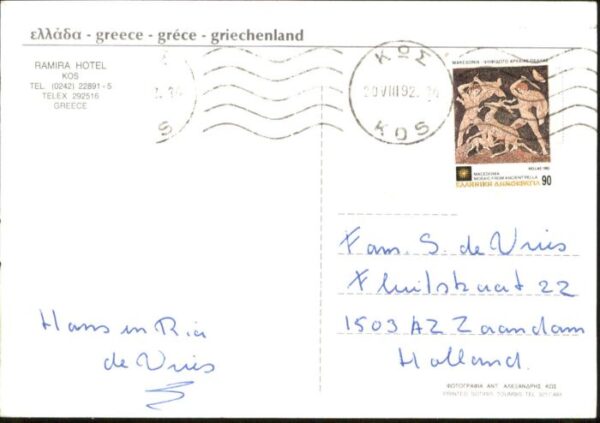 ελλάδα - greece - gréce - griechenland
RAMIRA HOTEL
KOS
TEL. (0242) 22891 - 5
TELEX 292516
GREECE
ΚΩΣ
20 VIII 92
KOS
ΜΑΚΕΔΟΝΙΑ - ΨΗΦΙΔΩΤΟ ΑΡΧΑΙΑΣ ΠΕΛΛΑΣ
MACEDONIA
MOSAIC FROM ANCIENT PELLA
ΕΛΛΗΝΙΚΗ ΔΗΜΟΚΡΑΤΙΑ 90
Fam. S. de Vries
Fluitstraat 22
1503 AZ Zaandam
Holland.
Hans en Ria
de Vries
ΦΩΤΟΓΡΑΦΙΑ ΑΝΤ. ΑΛΕΞΑΝΔΡΗΣ ΚΩΣ